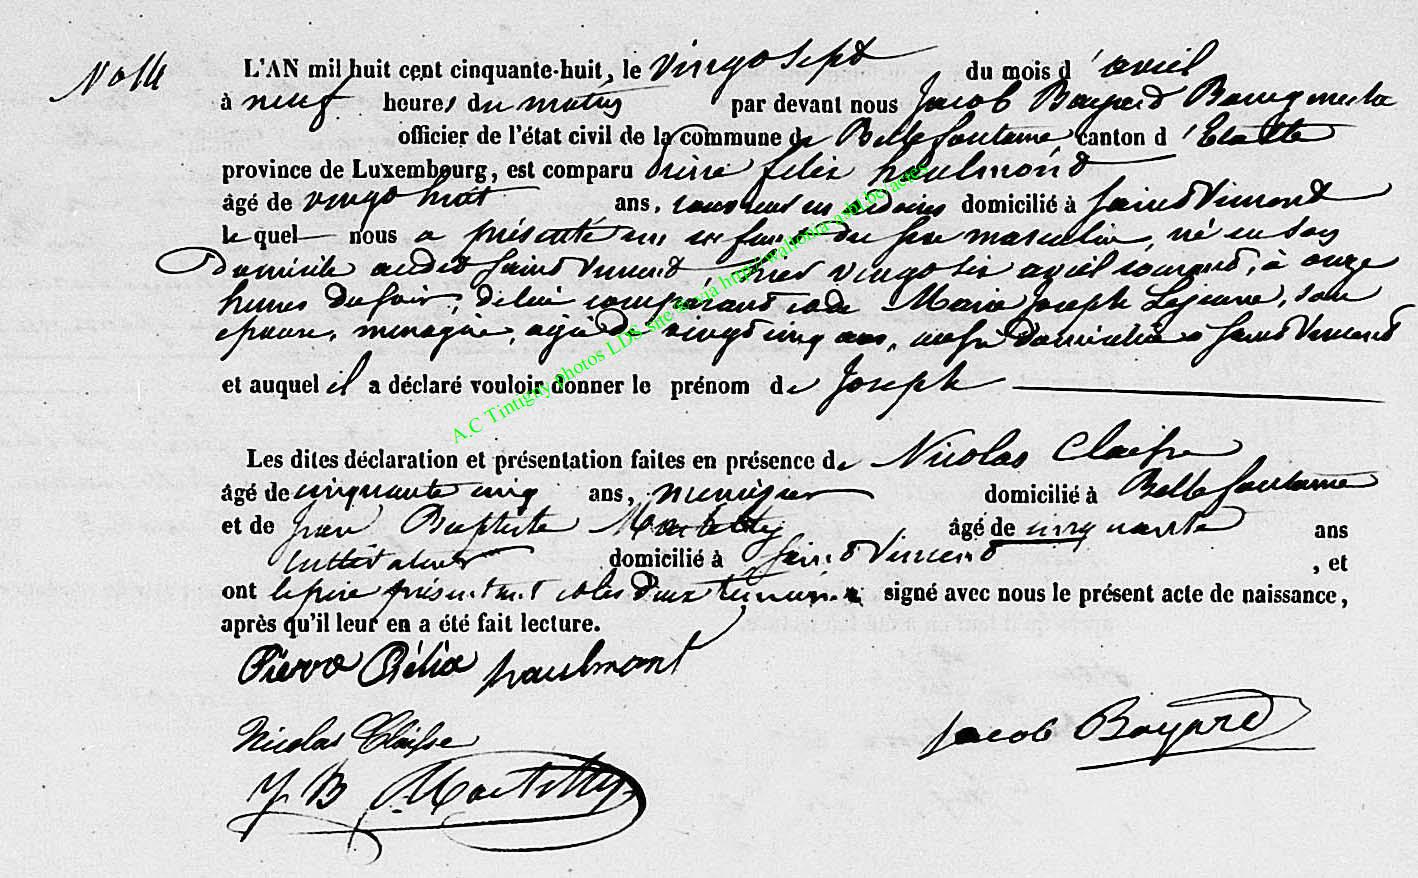 N° 14
L'AN mil huit cent cinquante-huit, le vingt sept du mois d'avril
à neuf heures du matin par devant nous Jacob Bayard Bourgmestre
officier de l'état civil de la commune de Bellefontaine, canton d'Etalle
province de Luxembourg, est comparu Pierre félix paulmond
âgé de vingt huit ans, domicilié à Saint Vincent
lequel nous a présenté un enfant du sexe masculin, né en son
Domicile audit Saint Vincent hier vingt six avril courant, à onze
heures du soir, de lui comparant et de Marie Joseph Lejeune, son
épouse, menagère, agée de vingt cinq ans, aussi domiciliée à Saint Vincent
et auquel il a déclaré vouloir donner le prénom de Joseph
Les dites déclaration et présentation faites en présence de Nicolas Claisse
âgé de cinquante cinq ans, domicilié à Bellefontaine
et de Jean Baptiste Martilly âgé de cinquante ans
cultivateur domicilié à Saint Vincent, et
ont le père présentant et les deux témoins signé avec nous le présent acte de naissance,
après qu'il leur en a été fait lecture.
Pierre Félix paulmont
Nicolas Claisse
Jacob Bayard
J B Martilly
A.C Tintigny photos LDS site & via http://wallonia-asbl.be/actes